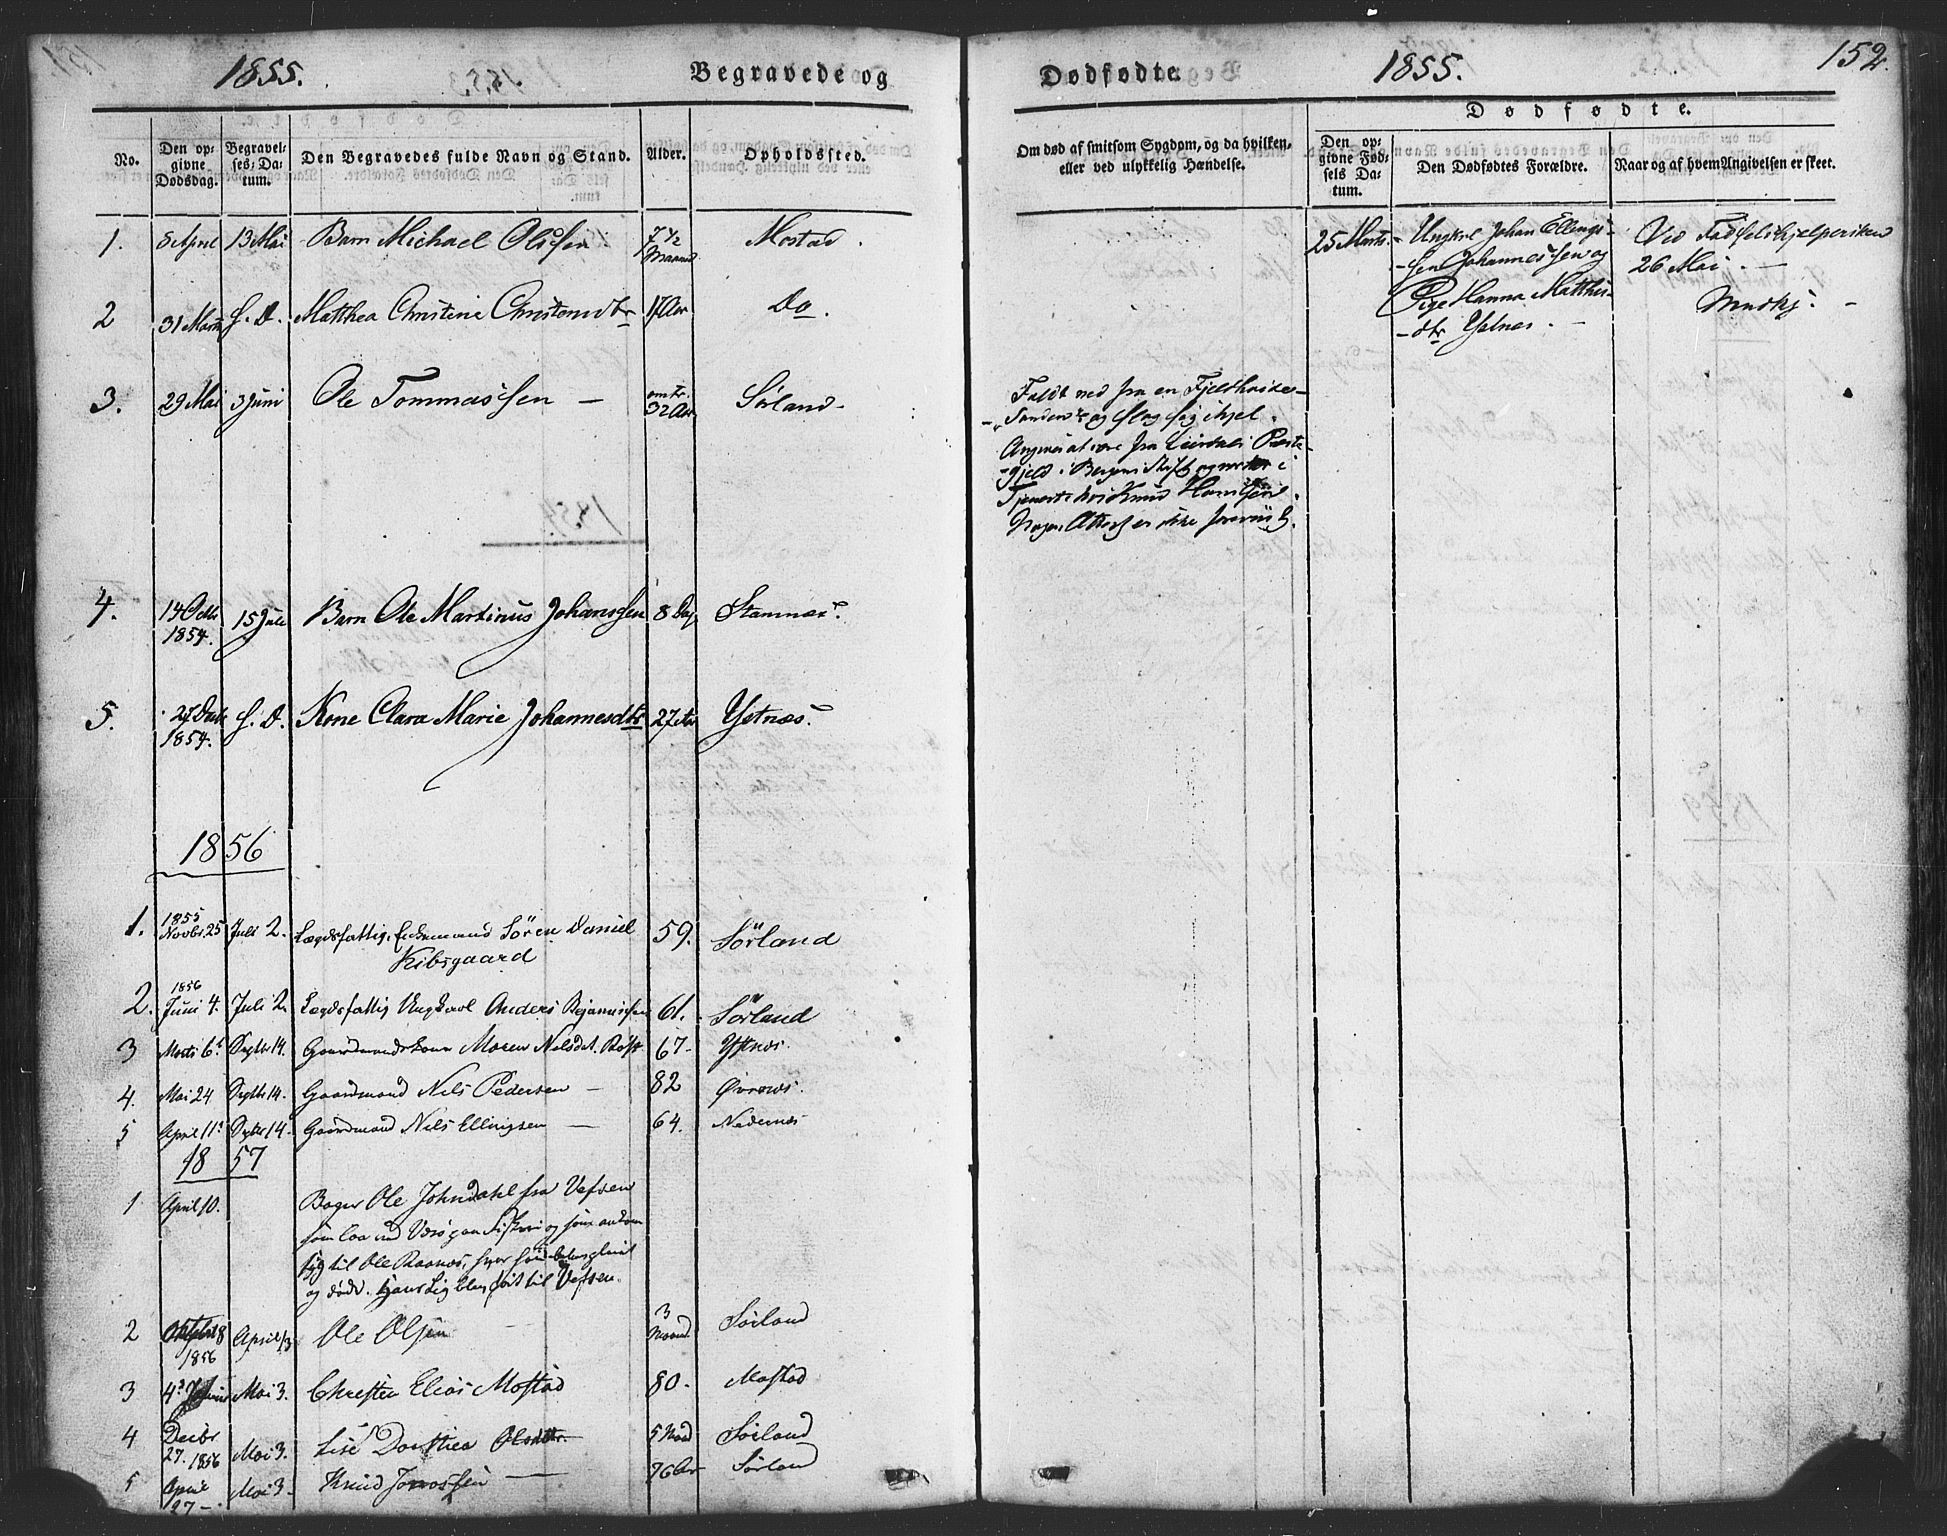 1855. Begravede og
No.
Den op-
givne
Dødsdag.
Begravel-
ses-Da-
tum.
Den Begravedes fulde Navn og Stand.
Alder.
Opholdssted.
1. 8 April 13 Mai Barn Michael Olssen 7 1/2 Maaned Mostad.
2 31 Marts S. D. Matthea Christine Christensdtr 17 Aar Do.
3. 29 Mai 3 Juni Ole Tommassen — omtr. 32 Aar Sørland.
1854.
4. 14 Octbr 1854. 15 Juli Barn Ole Martinus Johanssen 8 Dag Stamnæs.
5. 27 Decbr 1854. S. D. Kone Clara Marie Johannesdtr 27 Aar Ystnæs.
1856
1. 1855 Novbr. 25 Juli 2. Lægdsfattig, Enkemand Sören Daniel 59. Sörland
Kibsgaard
2. 1856 Juni 4. Juli 2. Lægdsfattig Ungkarl Anders Bejamissen 61. Sörland
3 Marts 6te Septbr 14. Gaardmandskone Maren Nilsdat. Røst 67 Ystnæs.
4. Mai 24 Septbr 14. Gaardmand Nils Pedersen — 82
5 April 11te Septbr 14. Gaardmand Nils Ellingsen — 64. Nedernæs
1857
1 April 10. Ole Johndahl fra Vefsen
som laa ved Værø paa Fiskeri og som ankom
sig til Ole Raanæs, hvor
og døde. Hans Lig blev ført til Vefsen.
2 1856 April 13 Ole Olsen 3 Maand. Sörland
3 Mai 3. Christen Elias Mostad 80. Mostad
4 Decbr 27. 1856 Mai 3. Lise Dorthea Olsdtr. 5 Maad Sörland
5 April 27 Mai 3 Knud Jonassen — 76 Aar Sörland
Dødfødte. 1855. 152.
Om død af smitsom Sygdom, og da hvilken,
eller ved ulykkelig Hændelse.
Dødfødte.
Den op-
givne Fød-
sels Da-
tum.
Den Dødfødtes Forældre.
Naar og af hvem Angivelsen er skeet.
25 Marts. Ungkrl Johan Ellings- Ved Fødselshjelpersken
-sen Johannessen og 26 Mai. —
Pige Hanna Matthis-
-dtr Ystnes. —
Faldt ned fra en Fjeld
og slog sig ihjel.
Angives at være fra Leirdals Præste-
-gjeld i Bergens Stift og
Tjeneste hos Knud Hansen.
Nogen Attest er ikke foreviist.